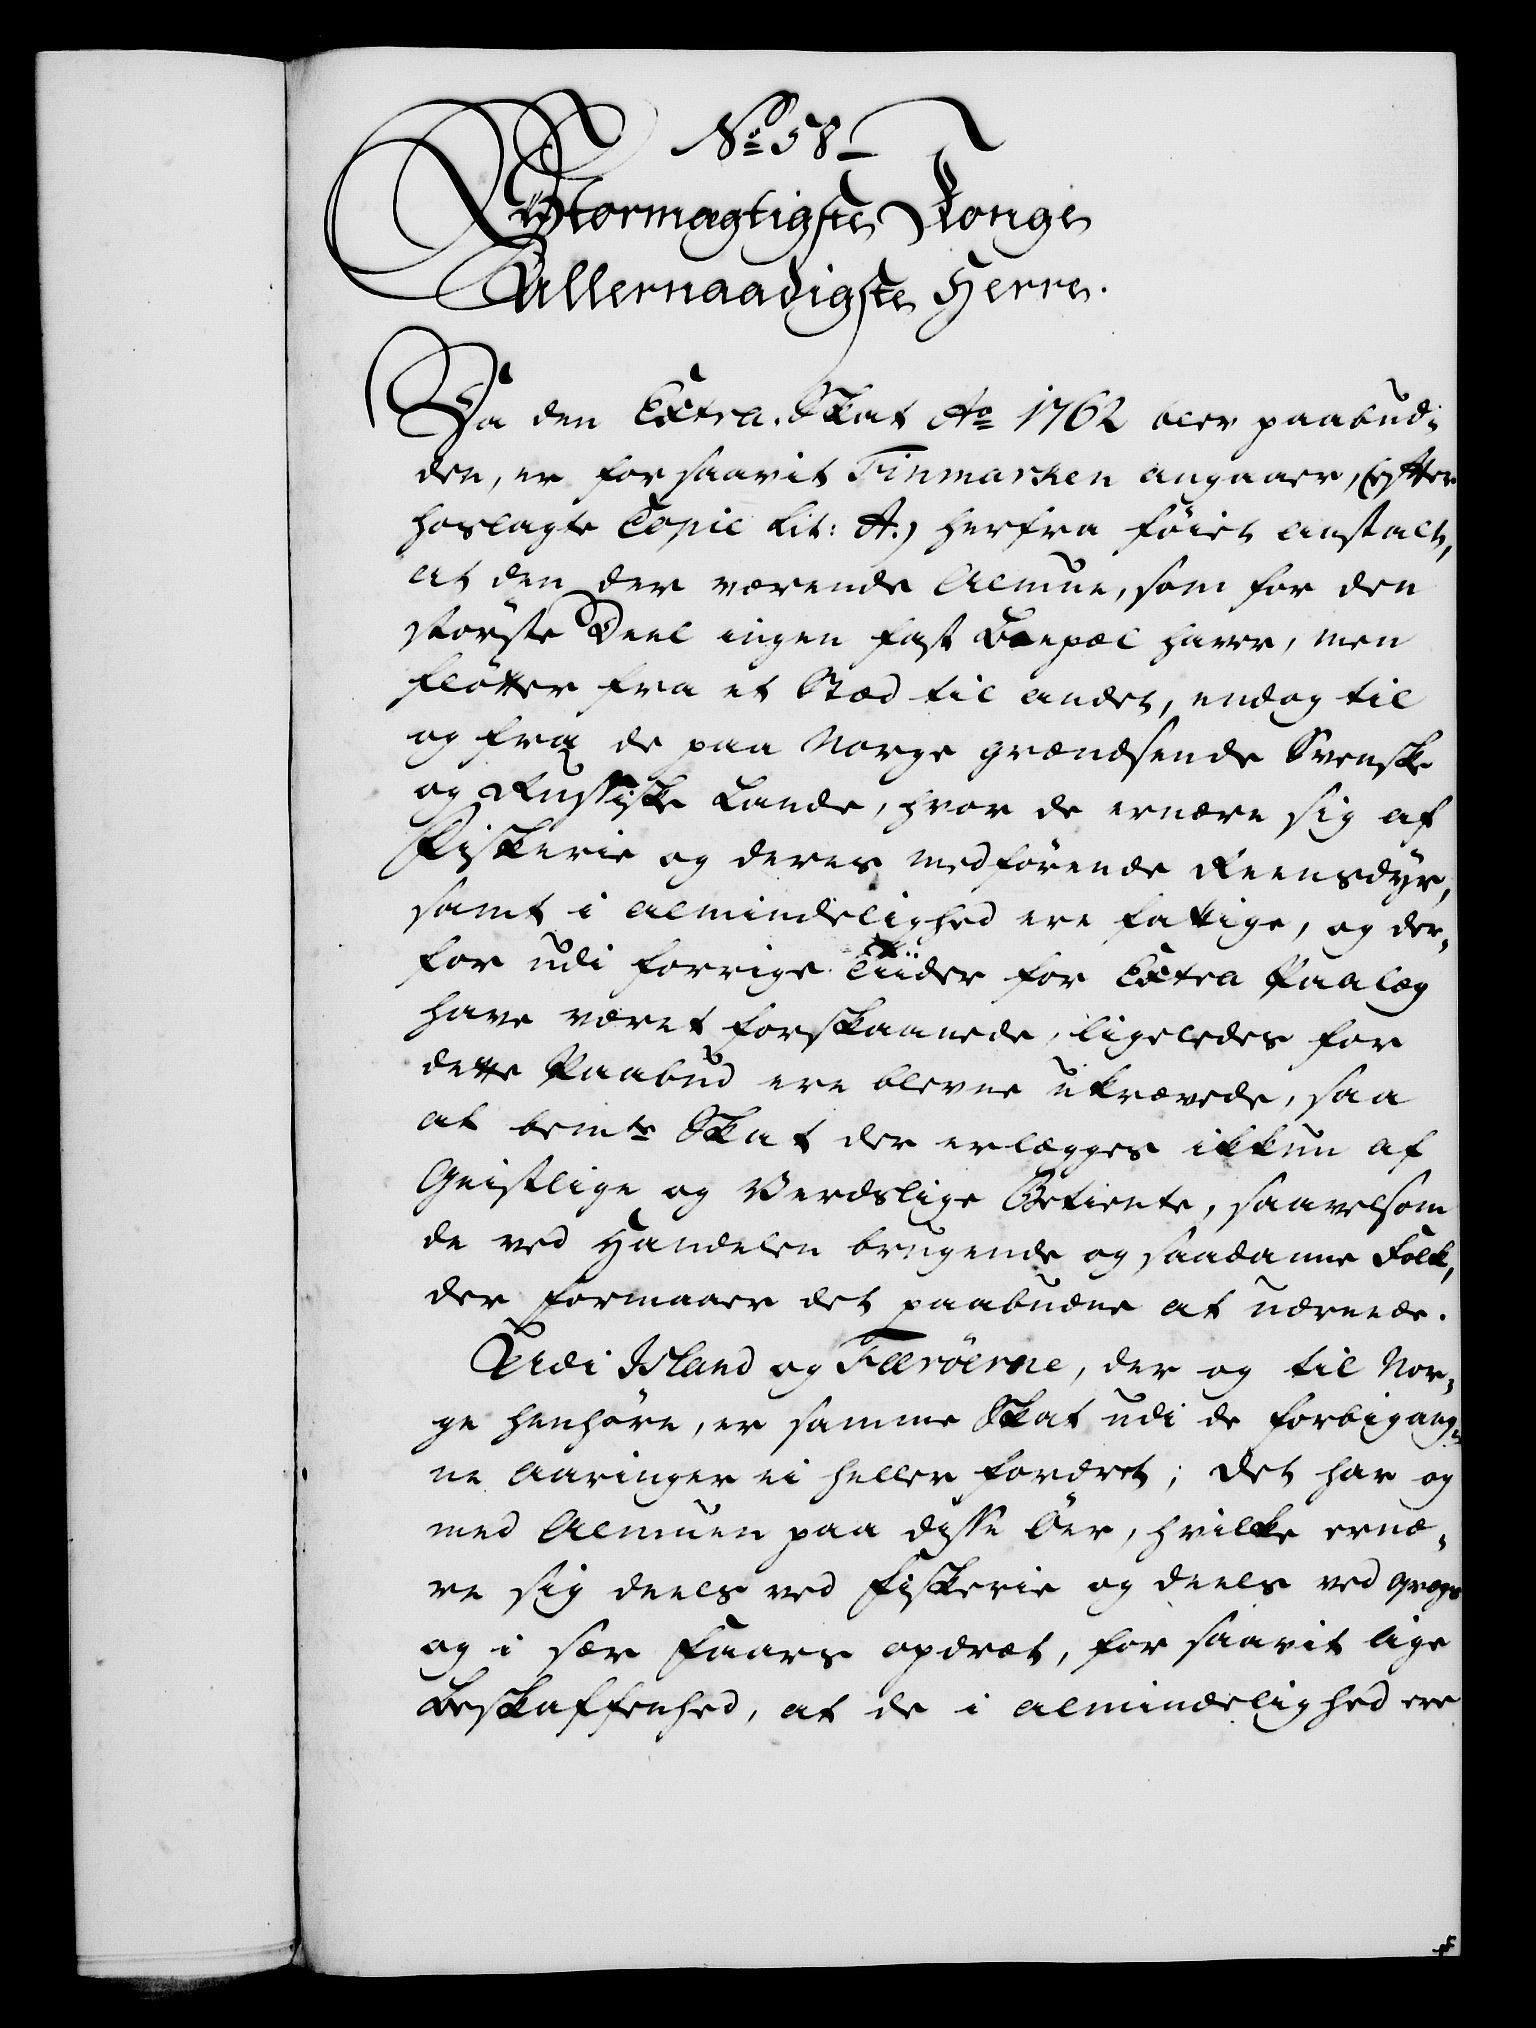 No 58
Stormægtigste Konge
Allernaadigste Herre.
Da den Extra-Skat Ao 1762 blev paabud-
den, er for saavit Finmarken angaaer, (efter
hoslagte Copie Lit: A.) herfra føiet Anstalt,
at den der værende Almue, som for den
største Deel ingen fast Boepæl haver, men
fløtter fra et Stæd til andet, endog til
og fra de paa Norge grændsende Svenske
og Russiske Lande, hvor de ernære sig af
Fiskerie og deres medførende Reensdyr,
samt i almindelighed ere fattige, og der-
for udi forrige Tiider for Extra Paalæg
have været forskaanede, ligeledes for
dette Paabud ere blevne ukrævede, saa
at bemte Skat der erlægges ikkun af
Geistlige og Verdslige Betiente, saavelsom
de ved Handelen brugende og saadanne Folk,
der formaaer det paabudne at udreede.
Udi Island og Færöerne, der og til Nor-
ge henhøre, er samme Skat udi de forbigang-
ne Aaringer ei heller fordret; det har og
med Almuen paa disse Øer, hvilke ernæ-
re sig deels ved Fiskerie og deels ved qvægs
og i sær Faars opdræt, for saavit lige
Beskaffenhed, at de i almindelighed ere